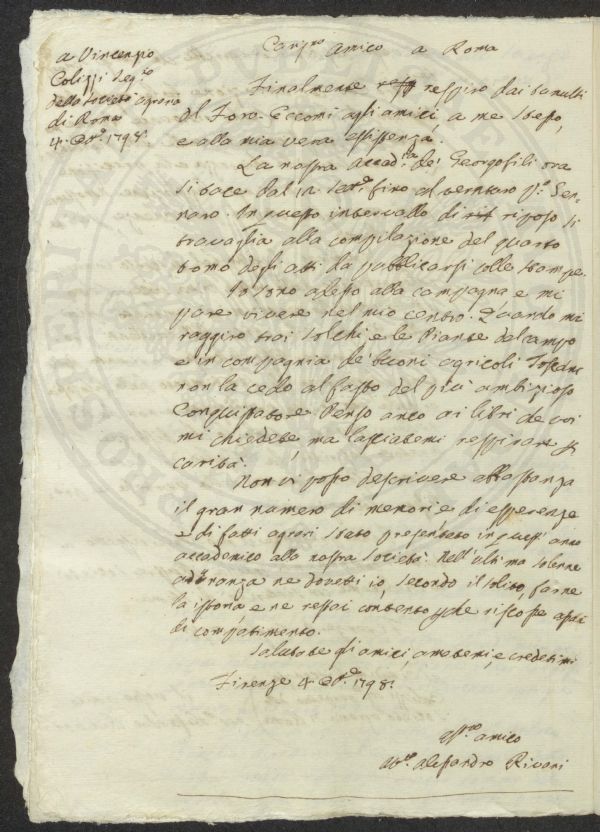 a Vincenzo
Colizzi Seg.rio
della Società Agraria
di Roma
4. 8bre. 1798.
Cariss.mo Amico a Roma
Finalmente respiro dai tumulti
del Foro. Eccomi agli amici, a me stesso,
e alla mia vera esistenza.
La nostra Accad.ia de' Georgofili ora
si tace dal 12. Set.e fino al venturo p.o Gen-
naro. In questo intervallo di riposo si
travaglia alla compilazione del quarto
tomo degli atti da pubblicarsi colle stampe.
Io sono adesso alla campagna e mi
pare vivere nel mio centro. Quando mi
raggiro trai solchi e le Piante del campo
e in compagnia de' buoni agricoli Toscani
non la cedo al fasto del più ambizioso
Conquistatore. Penso anco ai libri che voi
mi chiedete, ma lasciatemi respirare p
carità.
Non vi posso descrivere abbastanza
il gran numero di memorie e di esperenze
e di fatti agrari stato presentato in quest' anno
accademico alla nostra Società. Nell' ultima solenne
adunanza ne dovetti io, secondo il solito, farne
la istoria, e ne restai contento che riscosse assai
di compatimento.
Salutate gli amici, amatemi, e credetemi
Firenze 4. 8bre. 1798.
aff.mo amico
Ab.e Alessandro Rivani